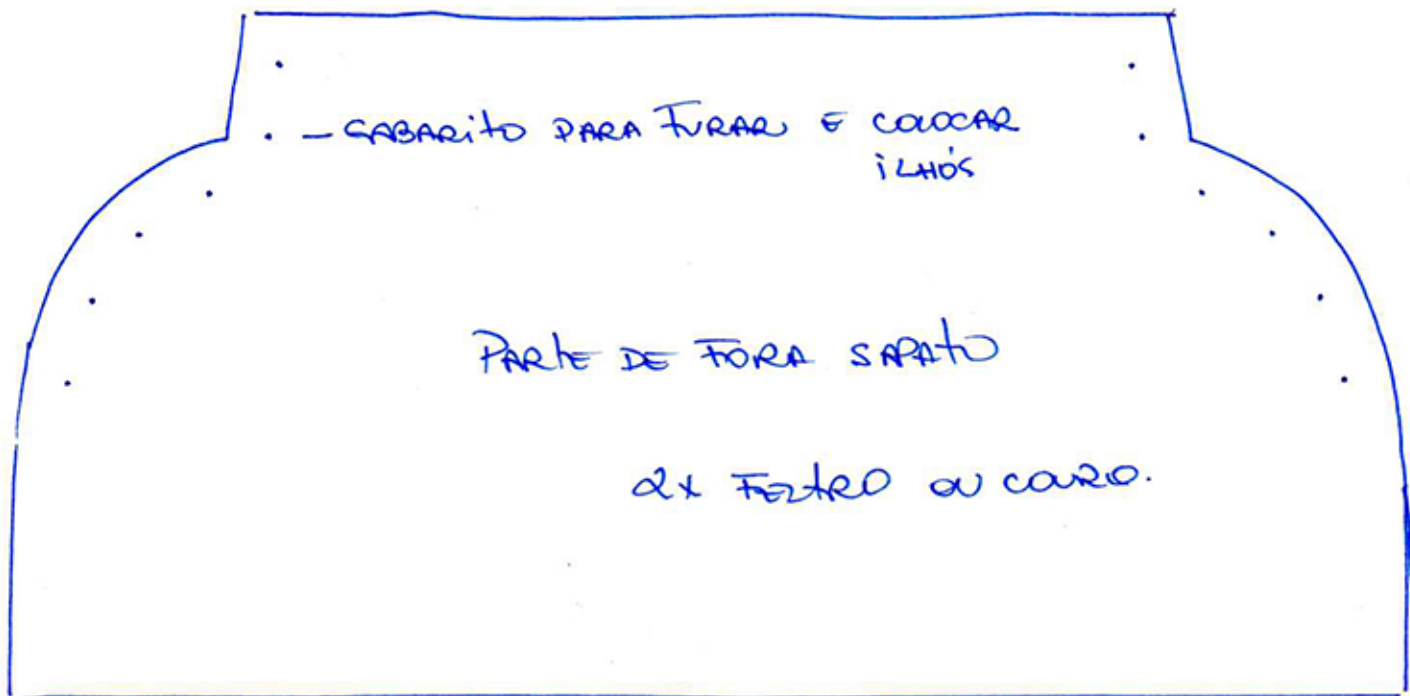 - GABARITO PARA FURAR E COLOCAR
ILHÓS
PARTE DE FORA SAPATO
2x FELTRO OU COURO.